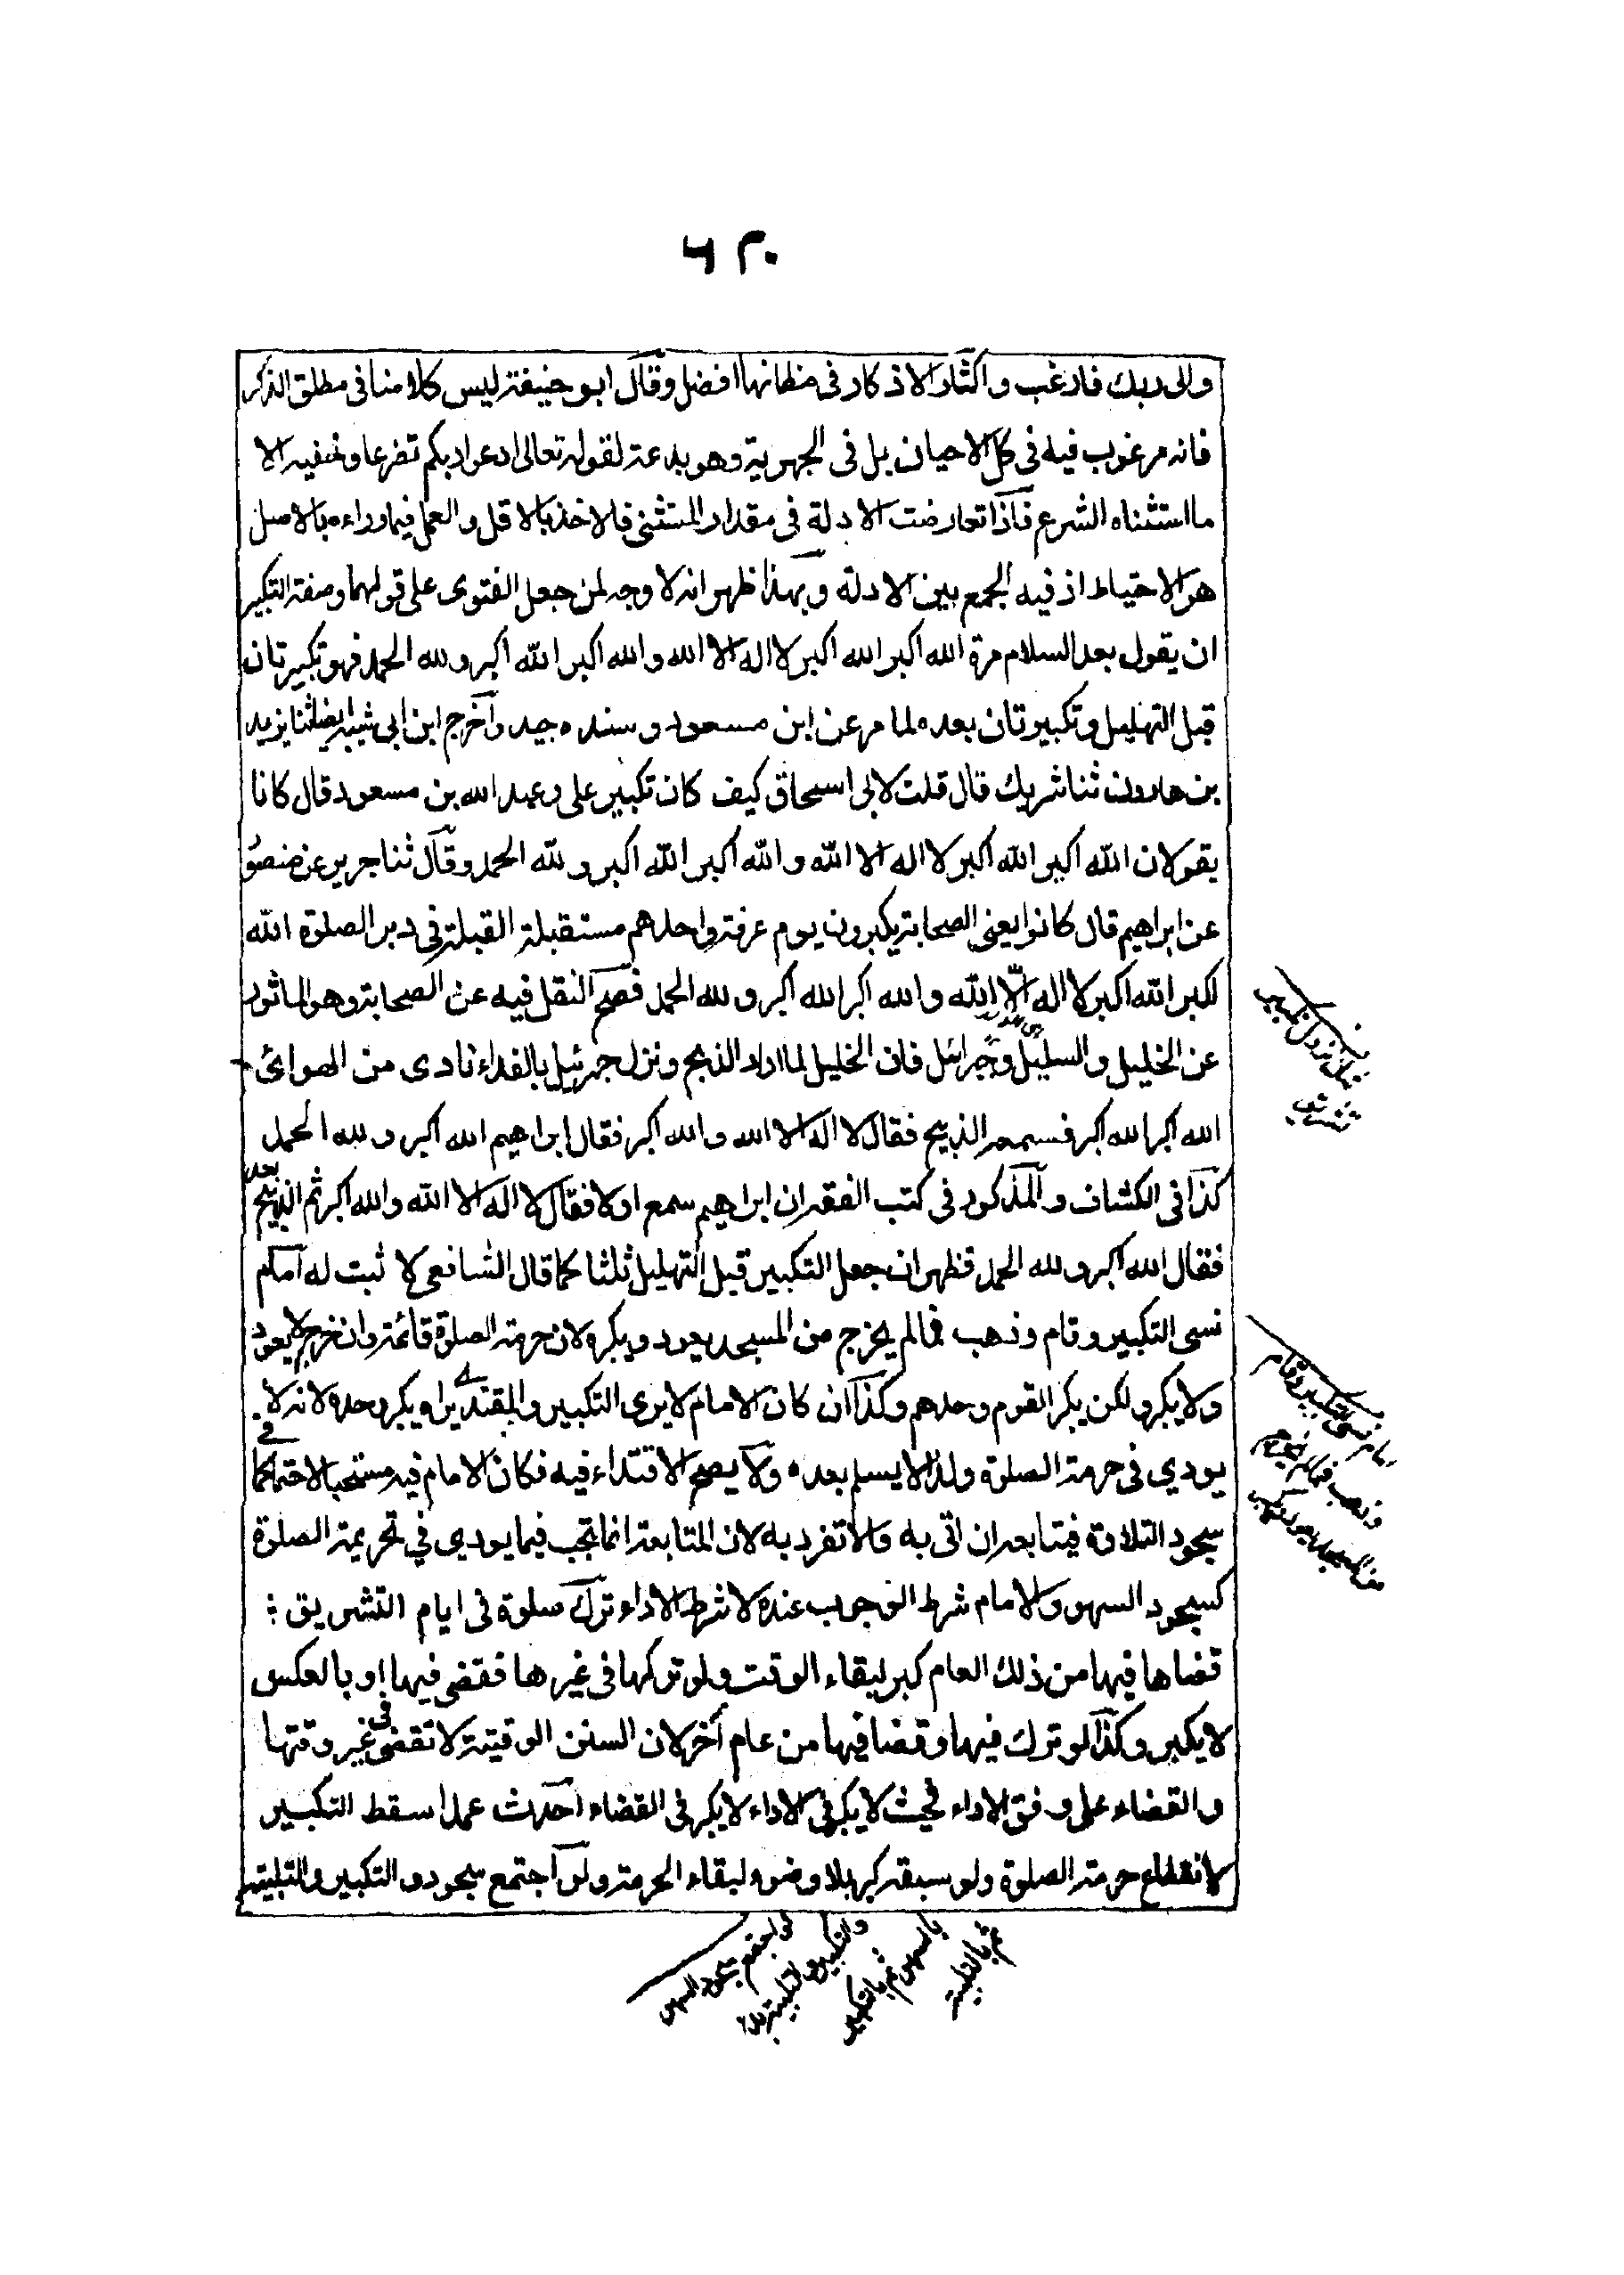 ٦٢٠
والى ربك فارغب واكثار الاذكار فى مظانها افضل وقال ابو حنيفة ليس كلامنا فى مطلق الذكر
فانه مرغوب فيه فى كل الاحيان بل فى الجهرية وهو بدعة لقوله تعالى ادعوا ربكم تضرعا وخفية الا
ما استثناه الشرع فاذا تعارضت الادلة فى مقدار المستثنى فالاخذ بالاقل والعمل فيما وراءه بالاصل
هو الاحتياط اذ فيه الجمع بين الادلة وبهذا ظهر انه لا وجه لمن جعل الفتوى على قولهما وصفة التكبير
ان يقول بعد السلام مرة الله اكبر الله اكبر لا اله الا الله والله اكبر الله اكبر ولله الحمد فهو تكبيرتان
قبل التهليل وتكبيرتان بعده لما مر عن ابن مسعود وسنده جيد واخرج ابن ابى شيبة ايضا ثنا يزيد
بن هارون ثنا شريك قال قلت لابى اسحاق كيف كان تكبير على وعبد الله بن مسعود قال كانا
يقولان الله اكبر الله اكبر لا اله الا الله والله اكبر الله اكبر ولله الحمد وقال ثنا جرير عن منصور
عن ابراهيم قال كانوا يعنى الصحابة يكبرون يوم عرفة واحدهم مستقبلة القبلة فى دبر الصلوة الله
اكبر الله اكبر لا اله الا الله والله اكبر الله اكبر ولله الحمد فصح النقل فيه عن الصحابة وهو الماثور
عن الخليل والسليل وجبرائيل فان الخليل لما اراد الذبح ونزل جبرئيل بالفداء نادى من الهوائ
الله اكبر الله اكبر فسمعه الذبيح فقال لا اله الا الله والله اكبر فقال ابراهيم الله اكبر ولله الحمد
كذا فى الكشاف والمذكور فى كتب الفقه ان ابراهيم سمع اولا فقال لا اله الا الله والله اكبر ثم الذبيح بعده
فقال الله اكبر ولله الحمد فظهر ان جعل التكبير قبل التهليل ثلثا كما قال الشافعى لا ثبت له امام
نسى التكبير وقام وذهب فما لم يخرج من المسجد يعود ويكبر لان حرمة الصلوة قائمة وان خرج لا يعود
ولا يكبر ولكن يكبر القوم وحدهم وكذا ان كان الامام لا يرى التكبير والمقتدى يراه يكبر وحده لانه لا
يودي فى حرمة الصلوة ولذا لا يسلم بعده ولا يصح الاقتداء فيه فكان الامام فيه مستحبا لا حتما كما فى
سجود التلاوة فيتابعه ان اتى به والا تفرد به لان المتابعة انما تجب فيما يودي في تحريمة الصلوة
كسجود السهو والامام شرط الوجوب عنده لا شرط الاداء ترك صلوة فى ايام التشريق
قضاها فيها من ذلك العام كبر لبقاء الوقت ولو تركها فى غيرها فقضى فيها او بالعكس
لا يكبر وكذا لو ترك فيها وقضا فيها من عام اخر لان السنن الوقتية لا تقضى فى غير وقتها
والقضاء على وفق الاداء فحيث لا يكبر فى الاداء لا يكبر فى القضاء احدث عمدا سقط التكبير
لانقطاع حرمة الصلوة ولو سبقه كبر بلا وضوء لبقاء الحرمة ولو اجتمع سجوده والتكبير والتلبية
امام نسى التكبير وقام
وذهب فما لم يخرج
من المسجد يعود
لو اجتمع سجود السهو
والتكبير والتلبية بدا
بالسهو ثم بالتكبير
ثم بالتلبية